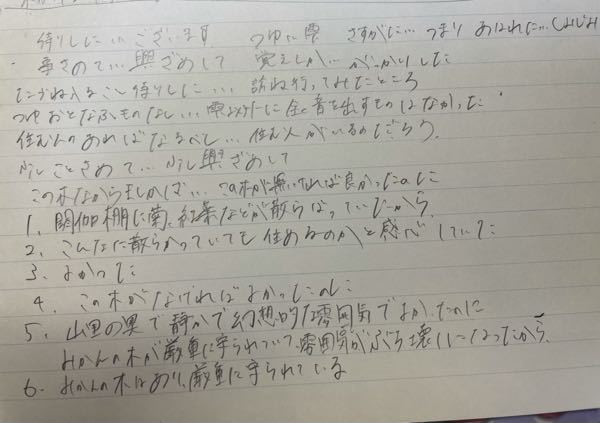 侍りしに…ございます つゆ…雫 さすがに…つまり あはれに…しみじみ
事さめて…興ざめして 覚えしか…がっかりした
たづね入ること侍りしに…訪ね行ってみたところ
つゆおとなふものなし…雫以外に全く音を出すものはなかった
住む人のあればなるべし…住む人がいるのだろう。
少しことさめて…少し興ざめして
この木なからましかば…この木が無ければ良かったのに
1. 閼伽棚に菊、紅葉などが散らばっていたから。
2. こんなに散らかっていても住めるのかと感心していた
3. よかった
4. この木がなければよかったのに
5. 山里の奥で静かで幻想的な雰囲気でよかったのに
みかんの木が厳重に守られていて、雰囲気がぶち壊しになったから。
6. みかんの木はあり、厳重に守られている